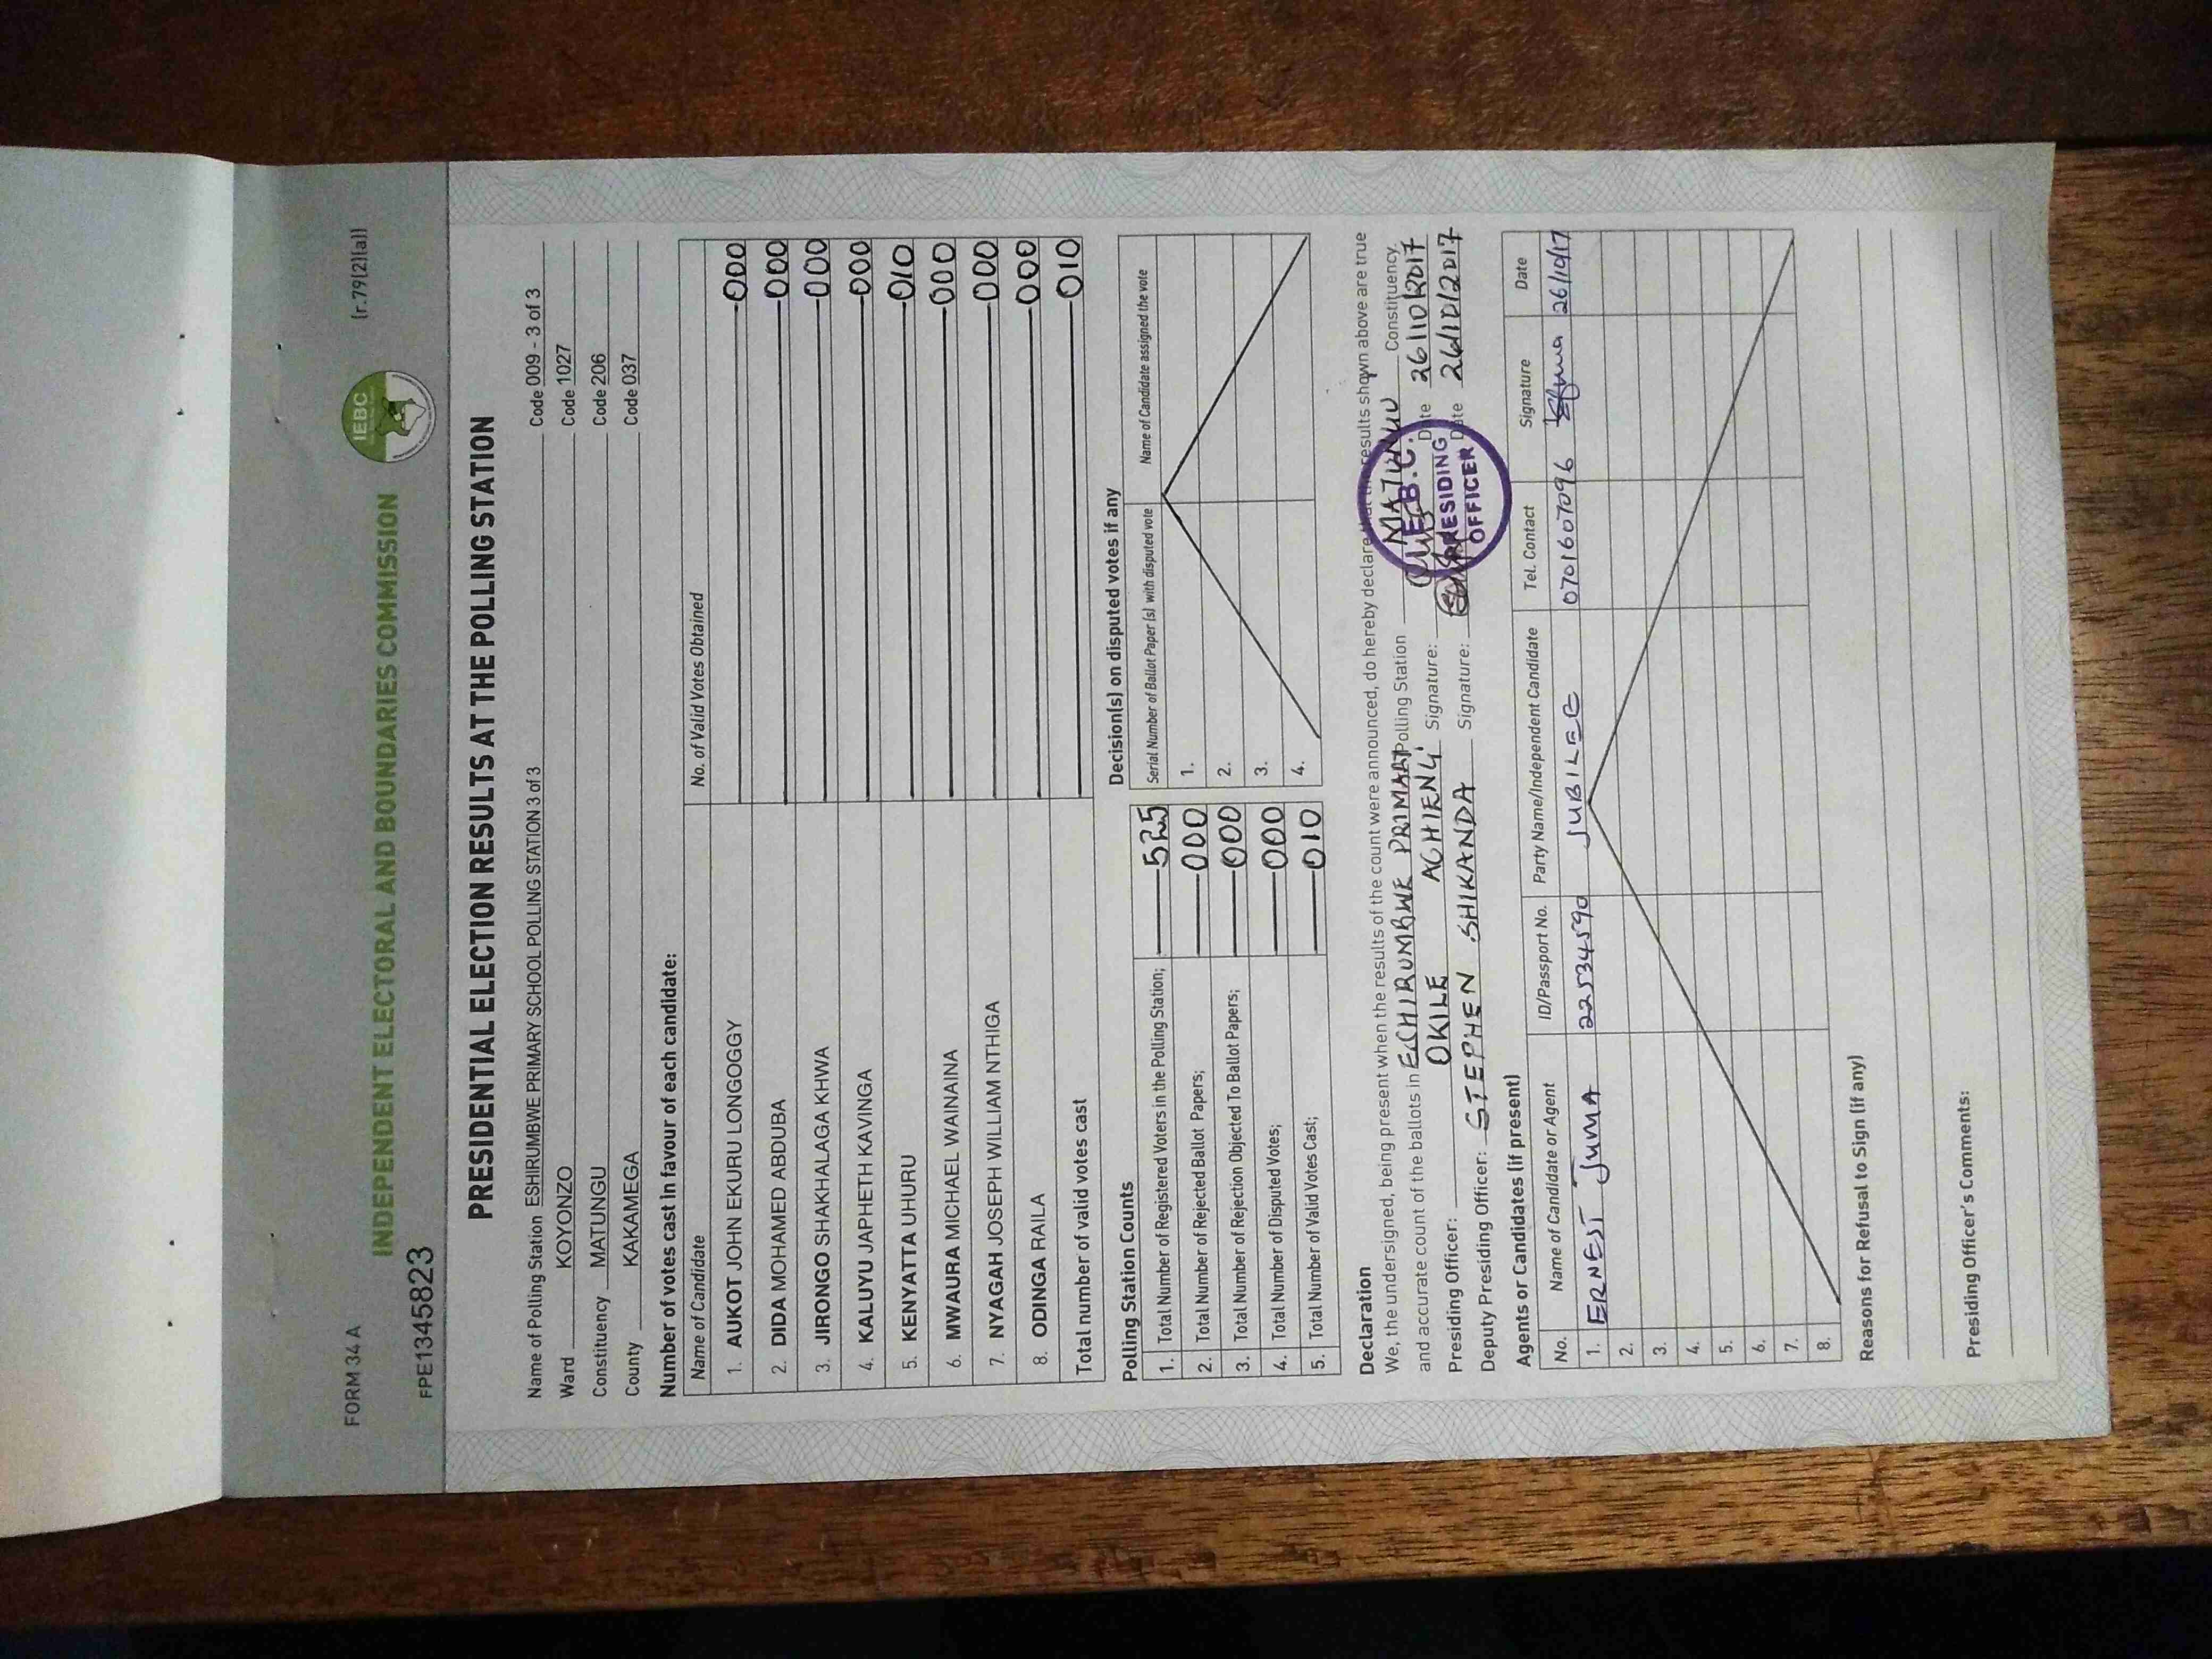 FORM 34 A
(r.79(2)(a))
IEBC
INDEPENDENT ELECTORAL AND BOUNDARIES COMMISSION
FPE1345823
PRESIDENTIAL ELECTION RESULTS AT THE POLLING STATION
Name of Polling Station ESHIRUMBWE PRIMARY SCHOOL POLLING STATION 3 of 3 Code 009 - 3 of 3
Ward KOYONZO Code 1027
Constituency MATUNGU Code 206
County KAKAMEGA Code 037
Number of votes cast in favour of each candidate:
Name of Candidate No. of Valid Votes Obtained
1. AUKOT JOHN EKURU LONGOGGY 000
2. DIDA MOHAMED ABDUBA 000
3. JIRONGO SHAKHALAGA KHWA 000
4. KALUYU JAPHETH KAVINGA 000
5. KENYATTA UHURU 010
6. MWAURA MICHAEL WAINAINA 000
7. NYAGAH JOSEPH WILLIAM NTHIGA 000
8. ODINGA RAILA 000
Total number of valid votes cast 010
Polling Station Counts
1. Total Number of Registered Voters in the Polling Station; 525
2. Total Number of Rejected Ballot Papers; 000
3. Total Number of Rejection Objected To Ballot Papers; 000
4. Total Number of Disputed Votes; 000
5. Total Number of Valid Votes Cast; 010
Decision(s) on disputed votes if any
Serial Number of Ballot Paper (s) with disputed vote Name of Candidate assigned the vote
1.
2.
3.
4.
Declaration
We, the undersigned, being present when the results of the count were announced, do hereby declare that the results shown above are true
and accurate count of the ballots in ECHIRUMBWE PRIMARY Polling Station MATUNGU Constituency
Presiding Officer: OKILE ACHIENG Signature: Date 26/10/2017
Deputy Presiding Officer: STEPHEN SHIKANDA Signature: Date 26/10/2017
I.E.B.C.
PRESIDING
OFFICER
Agents or Candidates (if present)
No. Name of Candidate or Agent ID/Passport No. Party Name/Independent Candidate Tel. Contact Signature Date
1. ERNEST JUMA 225344590 JUBILEE 0701607096 26/10/17
2.
3.
4.
5.
6.
7.
8.
Reasons for Refusal to Sign (if any)
Presiding Officer's Comments: